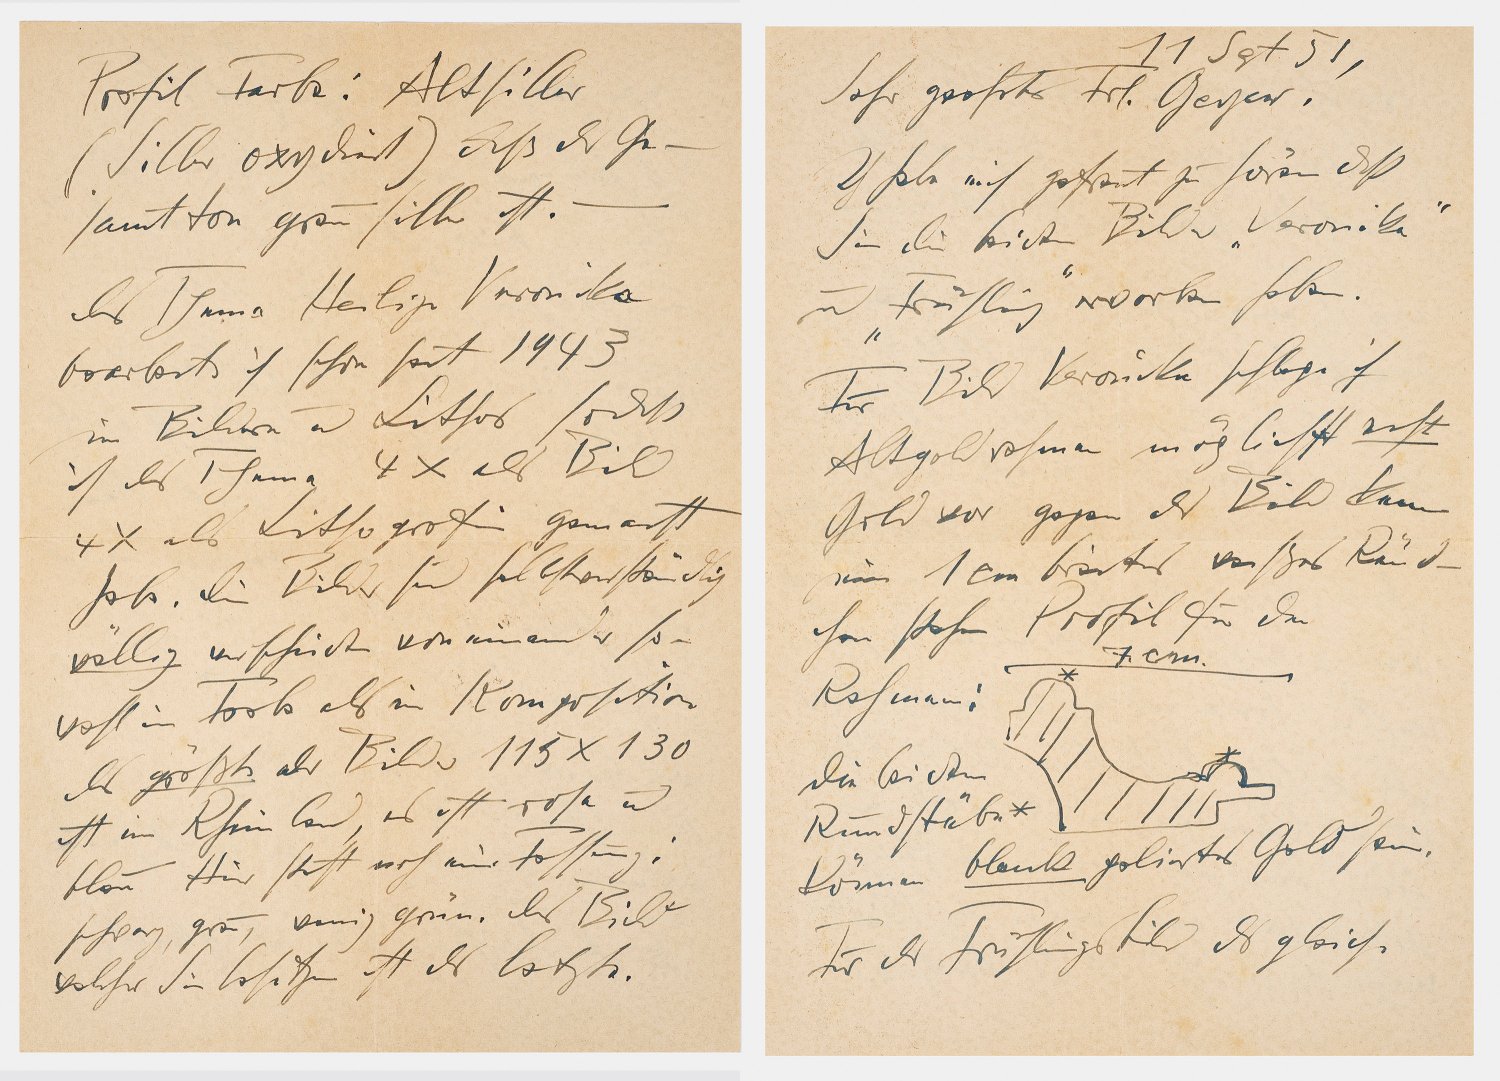 11 Spt 51,
Sehr geehrtes Frl. Geyer.
Ich habe mich gefreut zu hören daß
Sie die beiden Bilder „Veronika"
und „Frühling" erworben haben.
Für Bild Veronika schlage ich
Altgoldrahmen möglichst echt
Gold vor gegen das Bild kann
ein 1 cm breites weißes Ränd-
chen stehen Profil für den
7 cm.
Rahmen:
die beiden
Rundstäbe *
können blank poliertes Gold sein.
Für das Frühlingsbild das gleiche
Profil Farbe: Altsilber
(Silber oxydiert) daß der Ge-
samtton grau silber ist. —
das Thema Heilige Veronika
bearbeite ich schon seit 1943
in Bildern und Lithos sodaß
ich das Thema 4 X als Bild
4 X als Lithografie gemacht
habe. die Bilder sind selbstverständlich
völlig verschieden voneinander so-
wohl in Farbe als in Komposition
das größte der Bilder 115 X 130
ist im Rheinland, es ist rosa und
blau Hier steht noch eine Fassung:
schwarz, grau, wenig grün. das Bild
welches Sie besitzen ist das letzte.